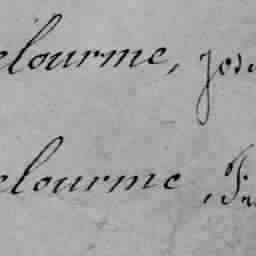 elourme, jos
elourme, Fr